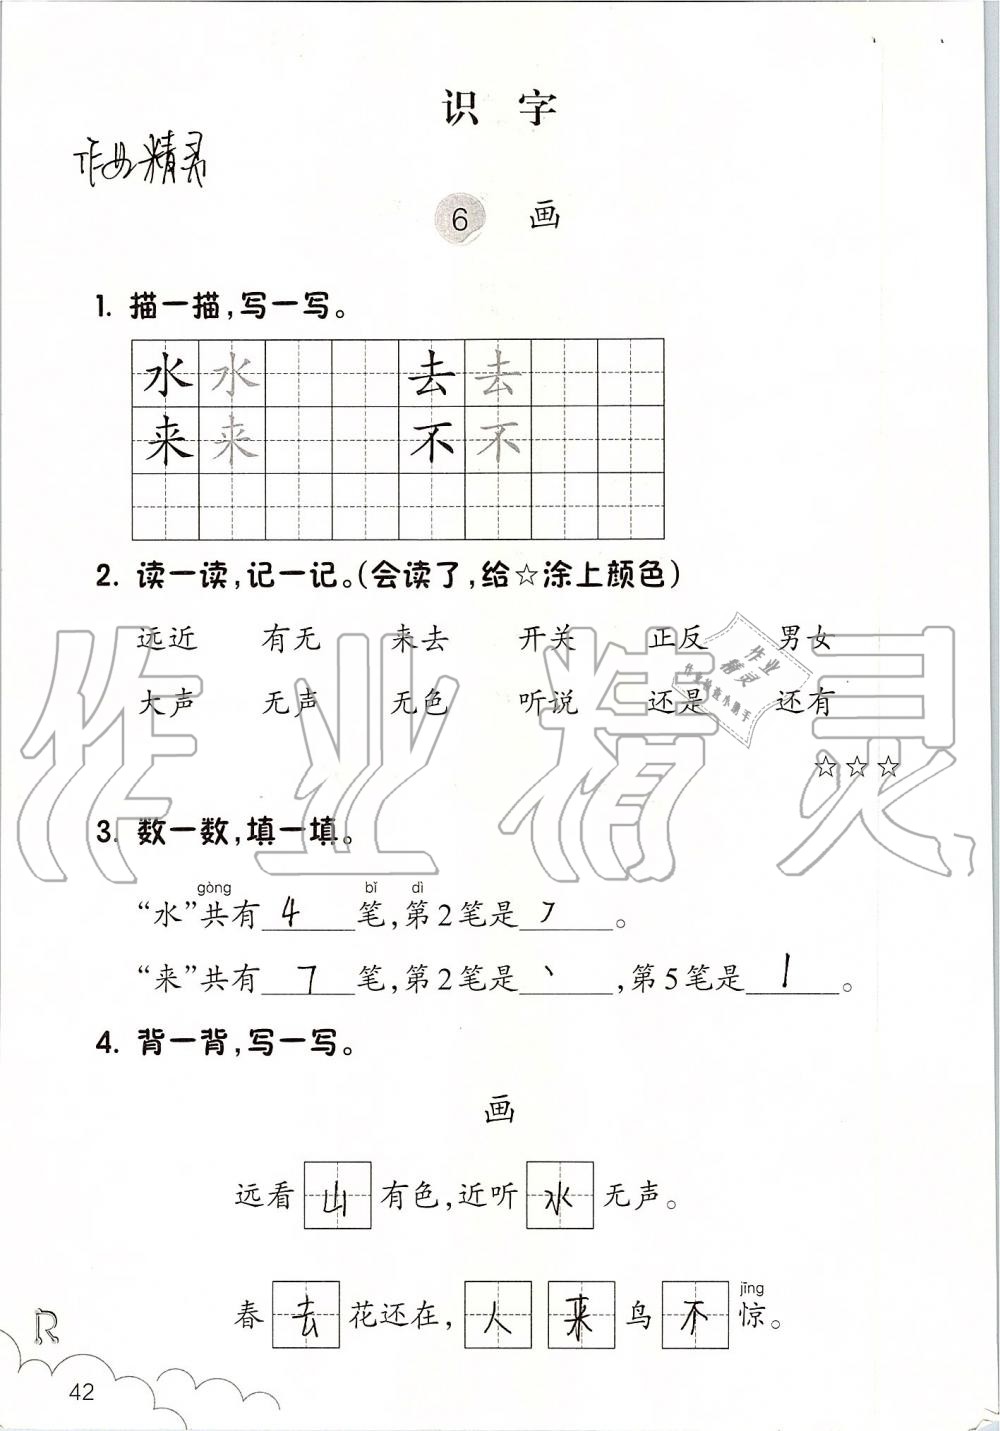 识 字
作业精灵
6 画
1. 描一描,写一写。
水 水 去 去
来 来 不 不
2. 读一读,记一记。(会读了,给☆涂上颜色)
远近 有无 来去 开关 正反 男女
大声 无声 无色 听说 还是 还有
作业精灵
作业
精灵
☆☆☆
3. 数一数,填一填。
gòng bǐ dì
“水”共有 4 笔,第2笔是 ㇇ 。
“来”共有 7 笔,第2笔是 丶 ,第5笔是 丨 。
4. 背一背,写一写。
画
远看 山 有色,近听 水 无声。
jīng
春 去 花还在, 人 来 鸟 不 惊。
R
42